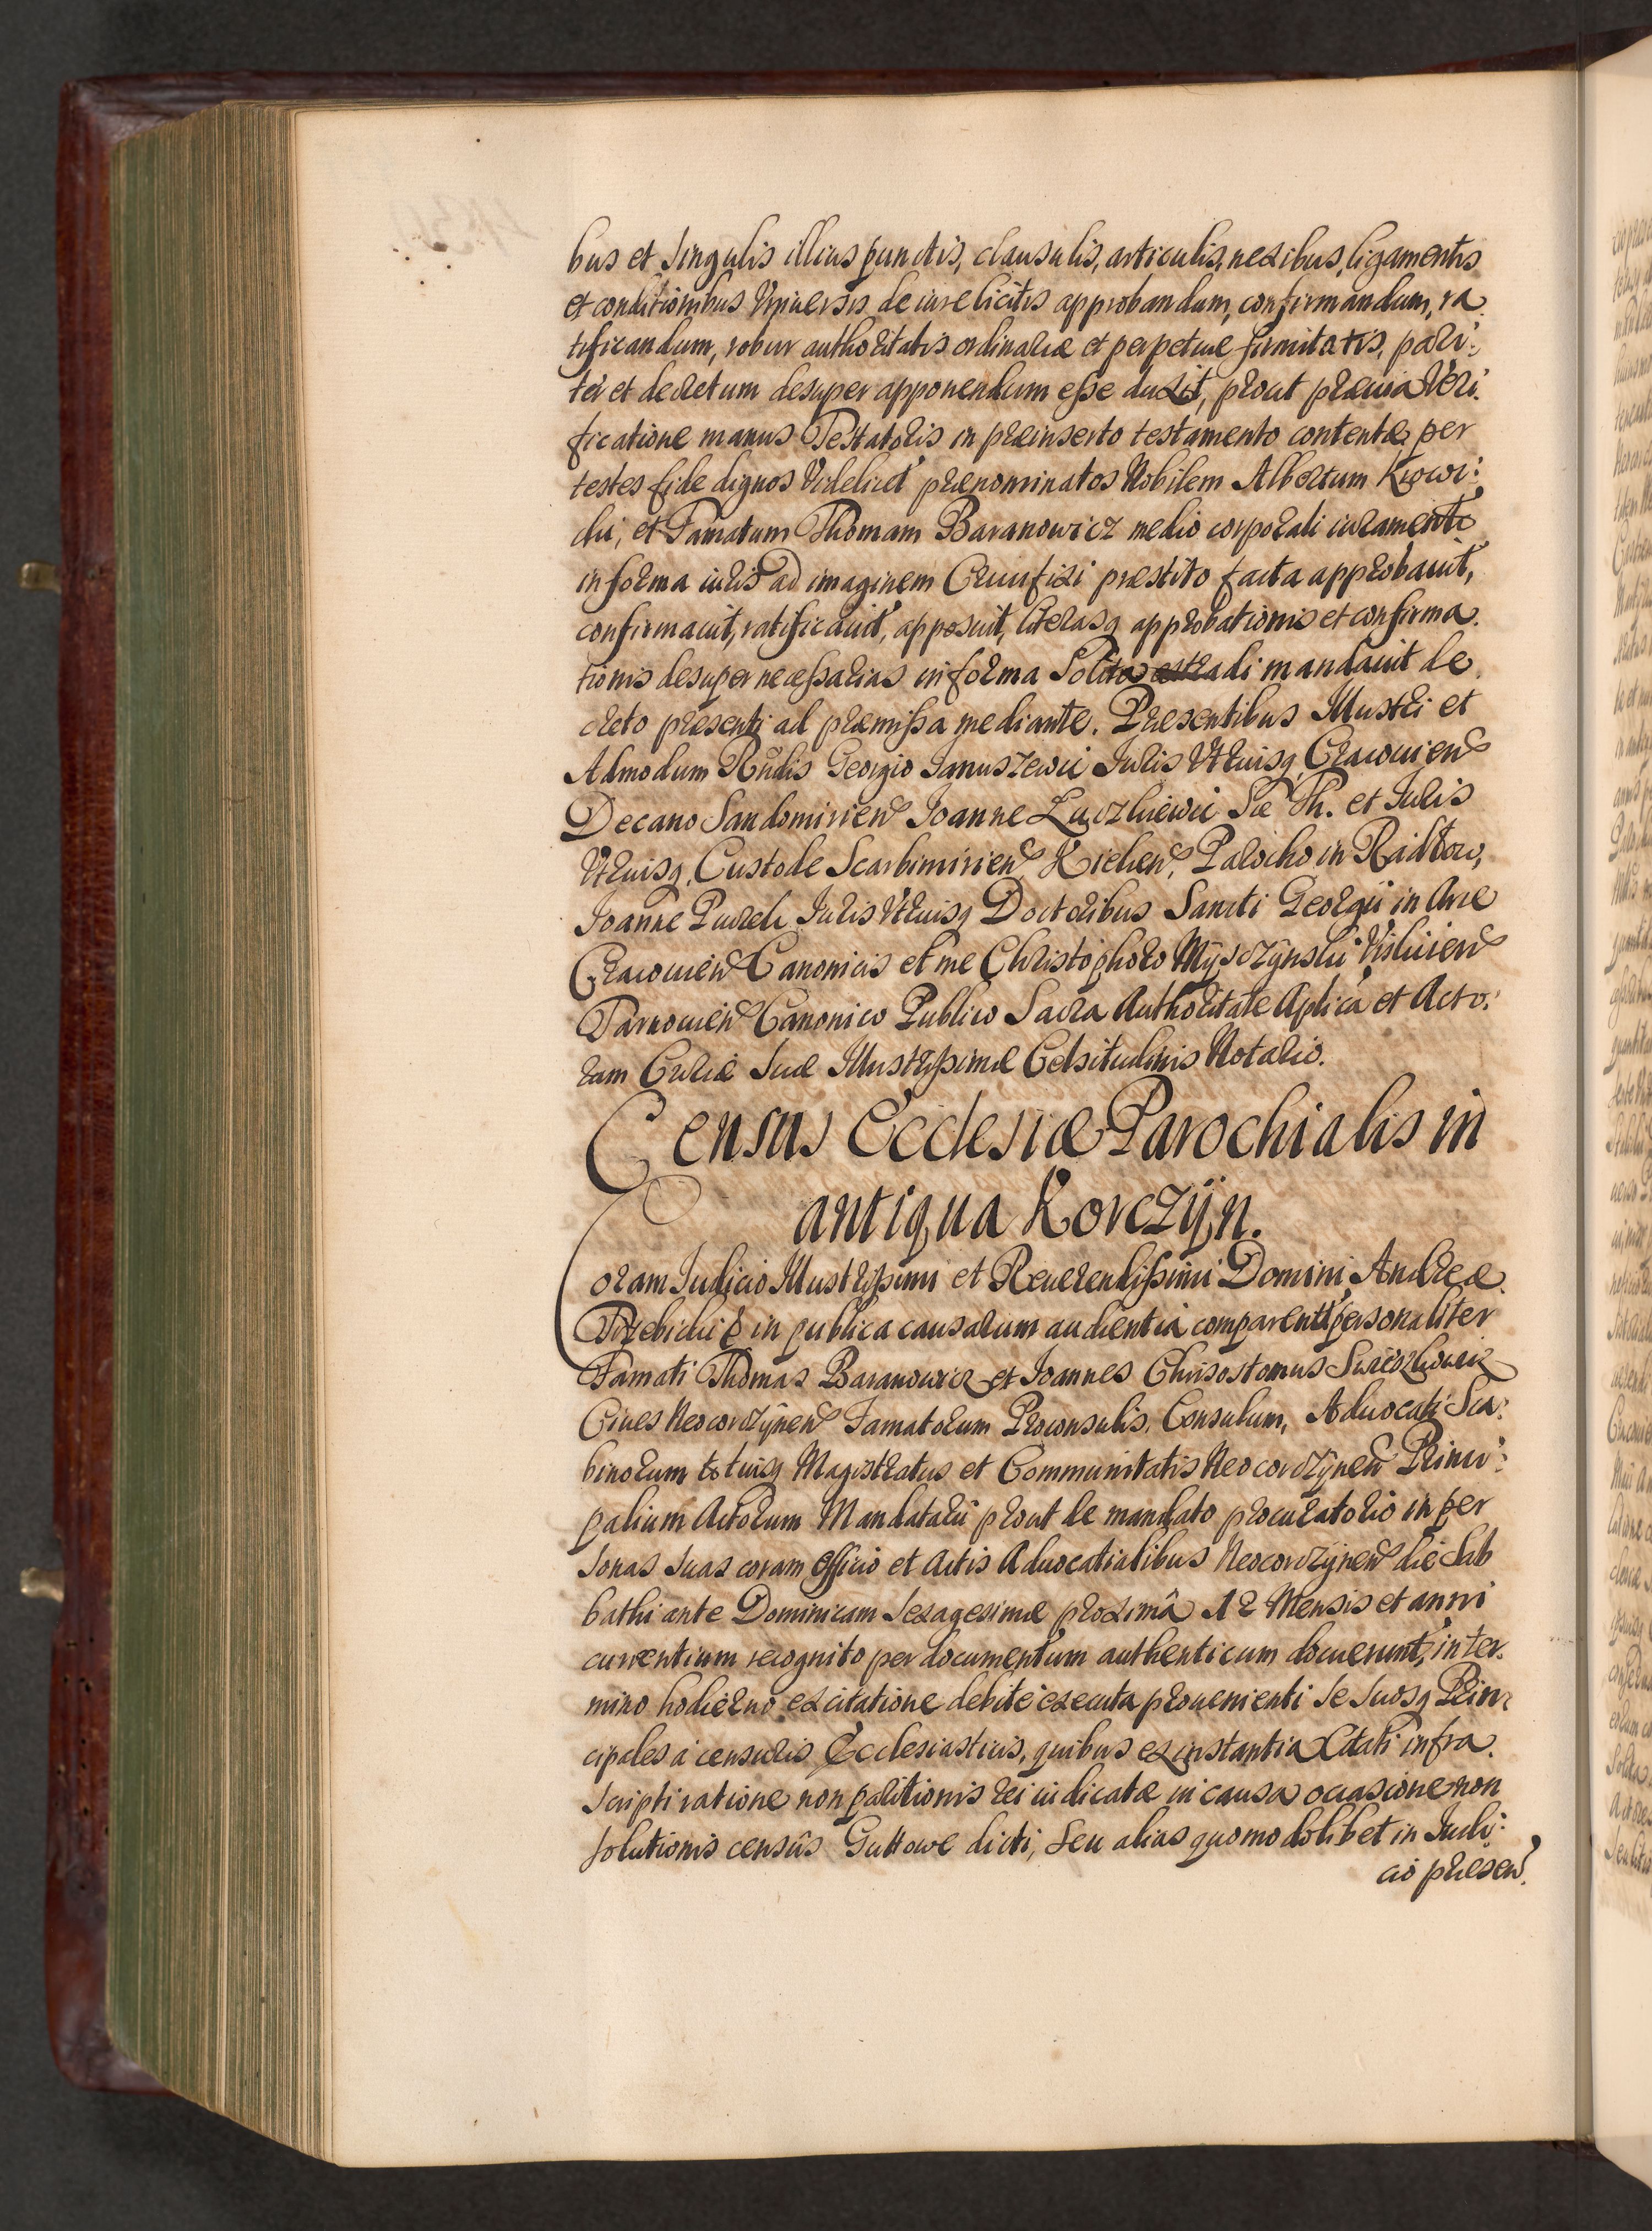 bus et singulis illius punctis, clausulis, articulis, nexibus, ligamentis
et conditionibus Vniuersis de iure licitis approbandum, confirmandum, ra
tificandum, robur authoritatis ordinariæ et perpetuæ firmitatis, pari:
ter et decretum desuper apponendum esse duxit, prout præuia Veri:
ficatione manus Testatoris in præinserto testamento contentæ per
testes fide dignos Videlicet prænominatos Nobilem Albertum Krowi:
cki, et Famatum Thomam Baranowicz medio corporali iuramento
in forma iuris ad imaginem Crucifixi præstito facta approbauit,
confirmauit, ratificauit, apposuit, literasq approbationis et confirma:
tionis desuper necessarias in forma Solita extradi mandauit de
creto præsenti ad præmissa mediante. Præsentibus Illustri et
Admodum Rndis Georgio Januszewic Juris Vtriusq Cracouien
Decano Sandomirien Joanne Łuczkiewic Sæ Th. et Juris
Vtriusq, Custode Scarbimirien Kielcen, Parocho in Radłow,
Joanne Juris Vtriusq Doctoribus Sancti Georgii in Arce
Cracouien Canonicis et me Christophoro Mysczynski Vislicien
Tarnouien Canonico Publico Sacra Authoritate Aplica et Acto:
rum Curiæ Suæ Illustrissimæ Celsitudinis Notario.
Census Ecclesiæ Parochialis in
antiqua Korczÿn.
Coram Judicio Illustrissimi et Reuerendissimi Domini Andreæ
Trzebicki & in publica causarum audientia comparentes personaliter
Famati Thomas Baranowicz et Joannes Chrisostomus
Ciues Neocorczÿnen Famatorum Proconsulis, Consulum, Aduocati Sca:
binorum totiusq Magistratus et Communitatis Neocorczÿnen Princi:
palium Actorum Mandatarii prout de mandato procuratorio in per
sonas suas coram officio et Actis Aduocatialibus Neocorczÿnen die Sab
bathi ante Dominicam Sexagesimæ proximâ 12 Mensis et anni
currentium recognito per documentum authenticum docuerunt, in ter:
mino hodierno ex citatione debitè executa prouenienti se suosq Prin:
cipales à censuris Ecclesiasticis, quibus ex instantia Citati infra
scripti ratione non paritionis rei iudicatæ in causa occasione non
solutionis censûs Guttowe dicti, seu alias quomodolibet in Judi:
cio præsen